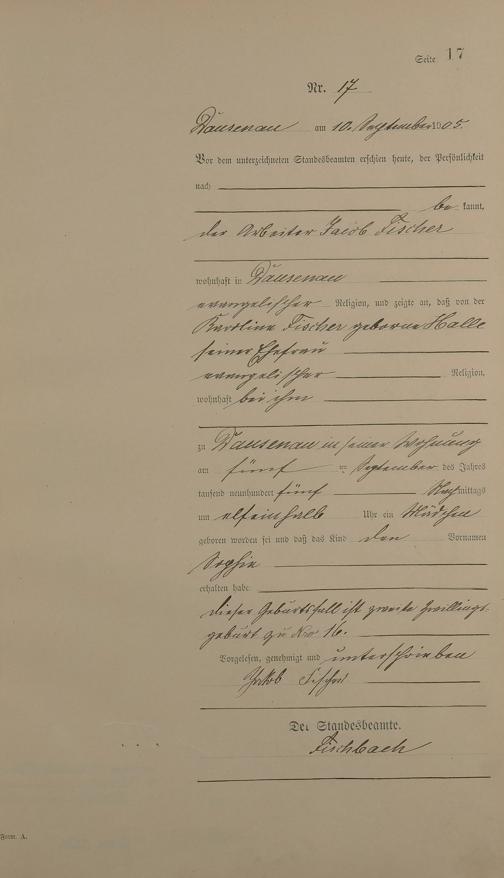 Seite 17
Nr. 17
Dausenau am 10. September 1905.
Vor dem unterzeichneten Standesbeamten erschien heute, der Persönlichkeit
nach
be kannt,
der Arbeiter Jacob Fischer
wohnhaft in Dausenau
evangelischer Religion, und zeigte an, daß von der
Karoline Fischer geborne Halle
seiner Ehefrau
evangelischer Religion,
wohnhaft bei ihm
zu Dausenau in seiner Wohnung
am fünf ten September des Jahres
tausend neunhundert fünf Nachmittags
um elfeinhalb Uhr ein Mädchen
geboren worden sei und daß das Kind den Vornamen
Sophie
erhalten habe
Dieser Geburtsfall ist zweite Zwillings-
geburt zu No 16.
Vorgelesen, genehmigt und unterschrieben
Jakob Fischer
Der Standesbeamte.
Fischbach
Form. A.